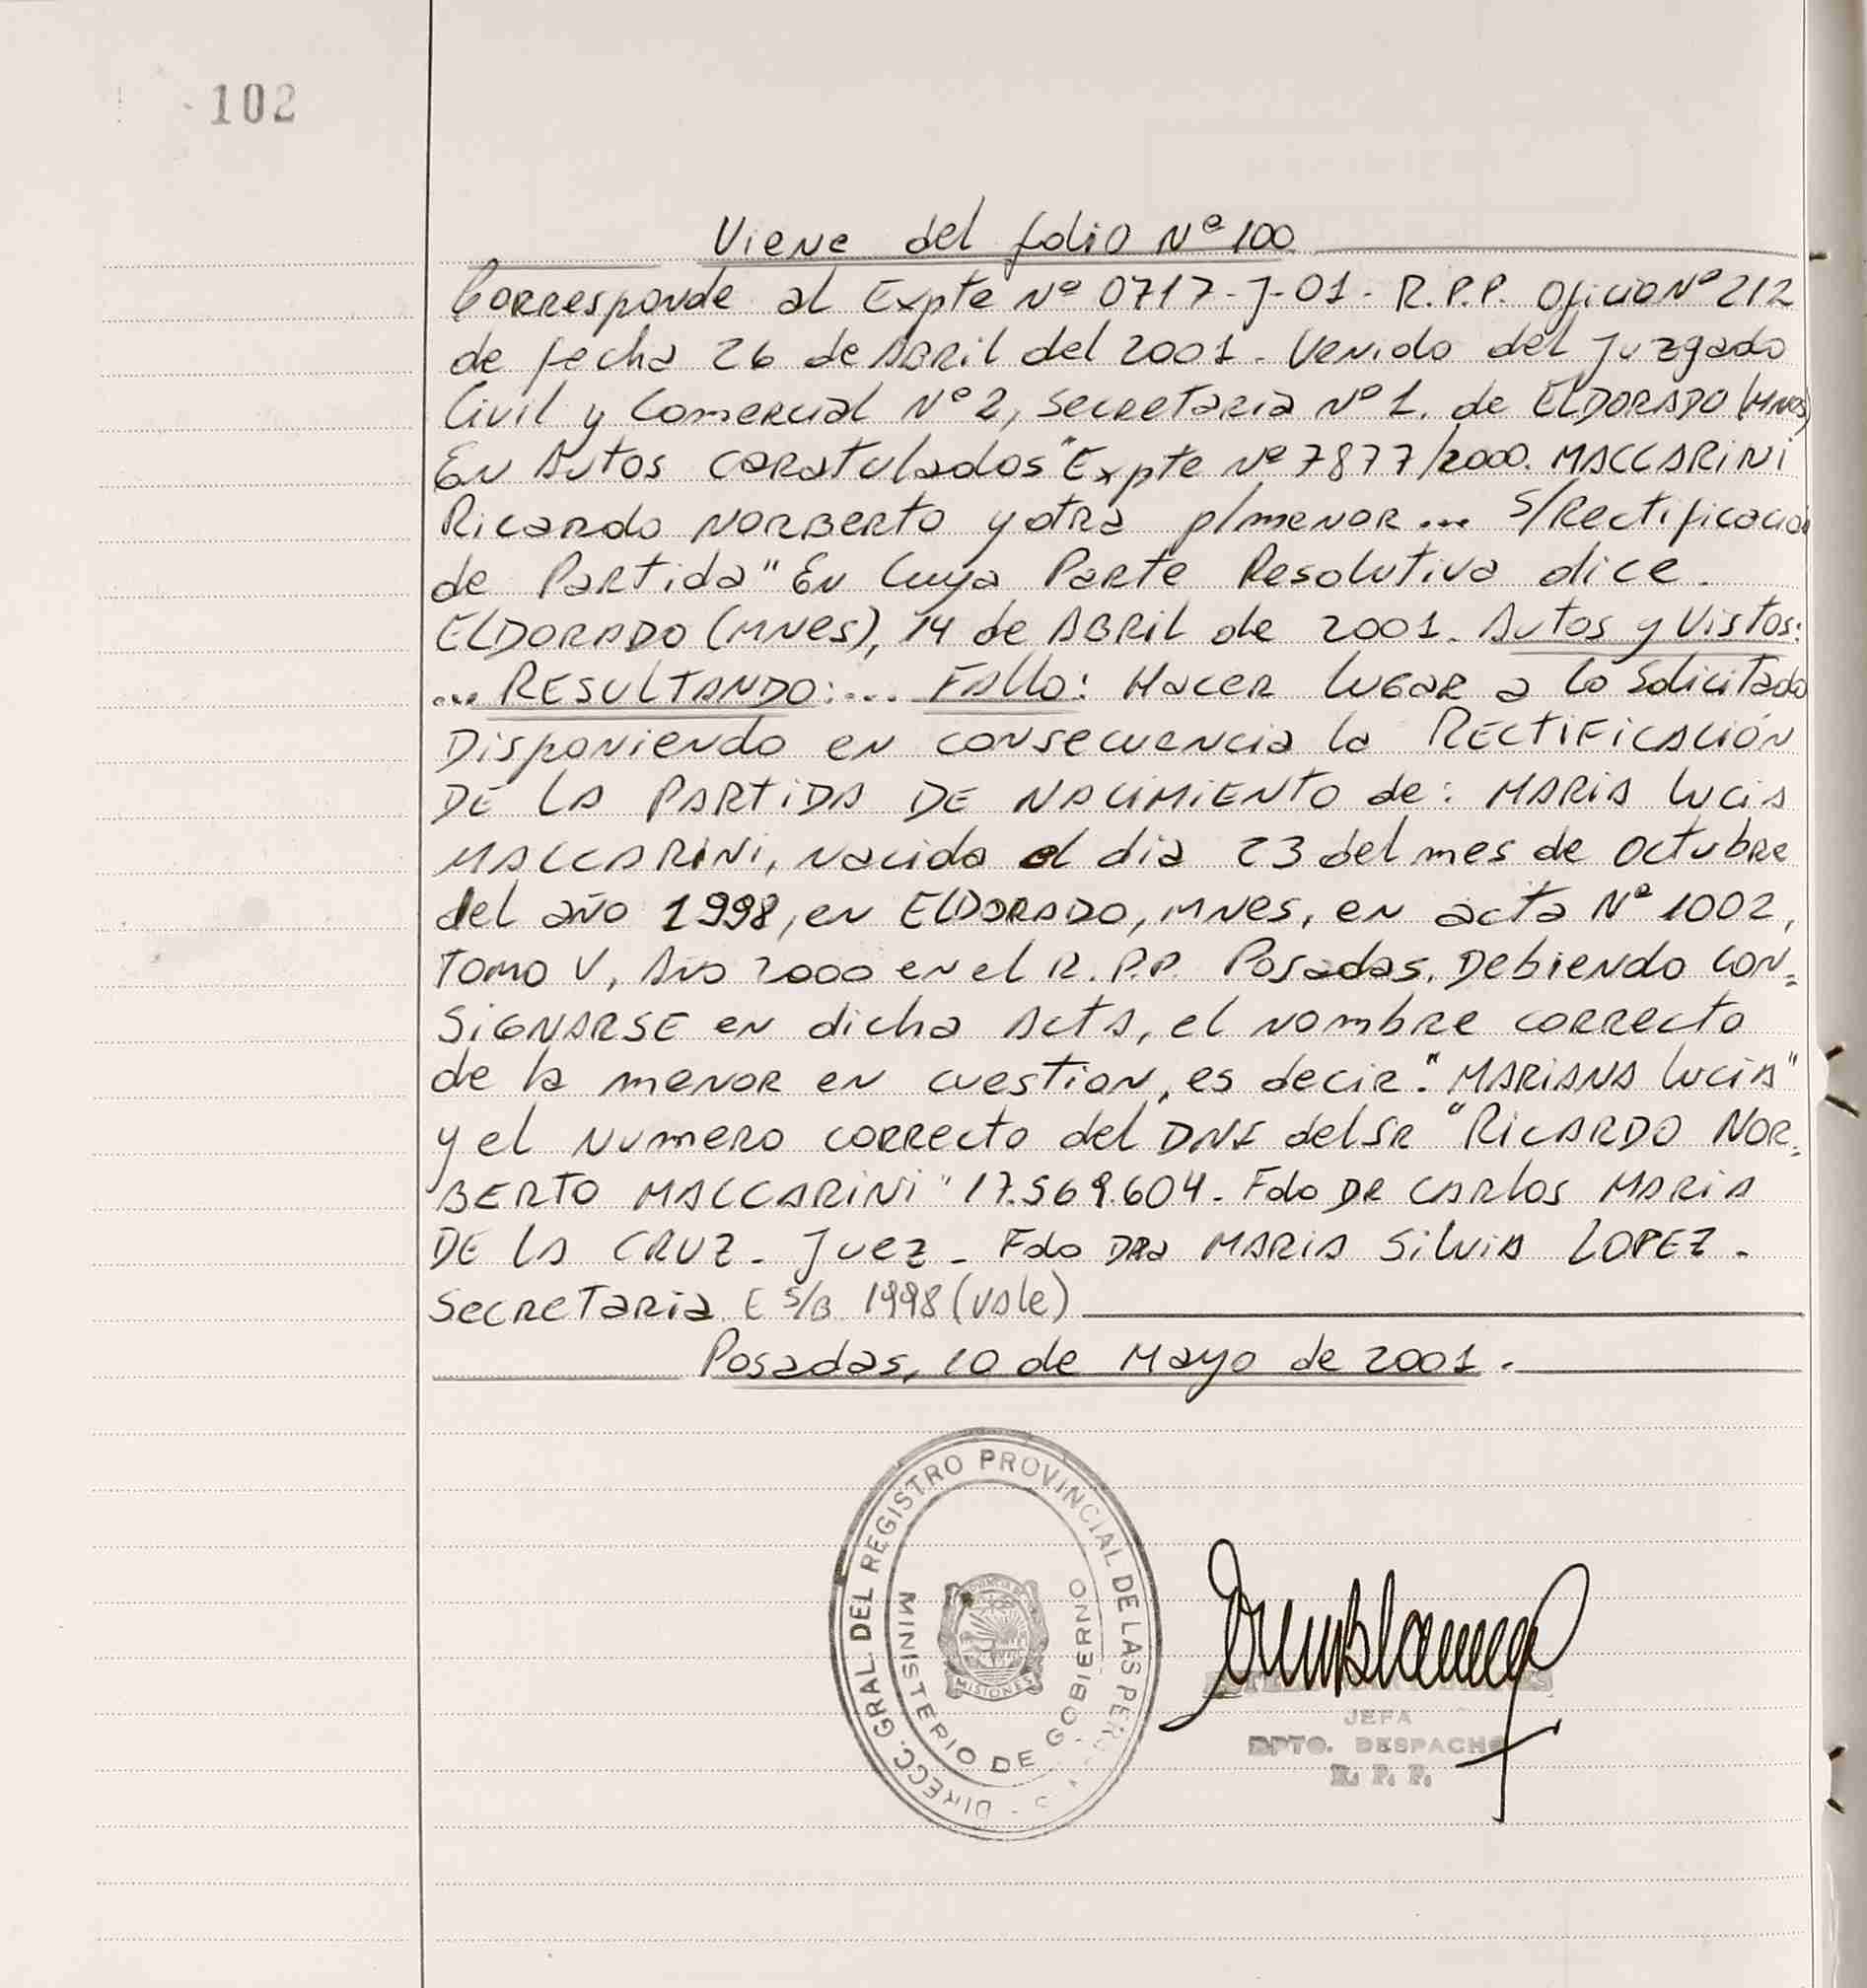 102
Viene del folio Nº 100
Corresponde al Expte Nº 0717-J-01- R.P.P. Oficio Nº 212
de fecha 26 de Abril del 2001. Venido del Juzgado
Civil y Comercial Nº 2, Secretaria Nº 1. de ELDORADO (MNES)
En Autos Caratulados "Expte Nº 7877/2000. MACCARINI
Ricardo NORBERTO y otra p/menor ... S/Rectificación
de Partida" En Cuya Parte Resolutiva dice.
ELDORADO (MNES), 14 de ABRil de 2001. Autos y Vistos:
... RESULTANDO:... Fallo: Hacer lugar a lo Solicitado
Disponiendo en consecuencia la RECTIFICACIÓN
DE LA PARTIDA DE NACIMIENTO de: MARIA LUCIA
MACCARINI, nacida el dia 23 del mes de octubre
del año 1998, en ELDORADO, MNES, en acta Nº 1002,
TOMO V, Año 2000 en el R.P.P. Posadas. Debiendo CON-
SIGNARSE en dicha Acta, el nombre correcto
de la menor en cuestion, es decir: "MARIANA LUCIA"
y el numero correcto del DNI del Sr "RICARDO NOR-
BERTO MACCARINI" 17.569.604. Fdo DR CARLOS MARIA
DE LA CRUZ. Juez - Fdo DRA MARIA SILVIA LOPEZ -
Secretaria. E S/B 1998 (vale)
Posadas, 10 de Mayo de 2001.
DIRECC. GRAL. DEL REGISTRO PROVINCIAL DE LAS PERSONAS
MINISTERIO DE GOBIERNO
MISIONES
JEFA
DPTO. DESPACHO
R. P. P.